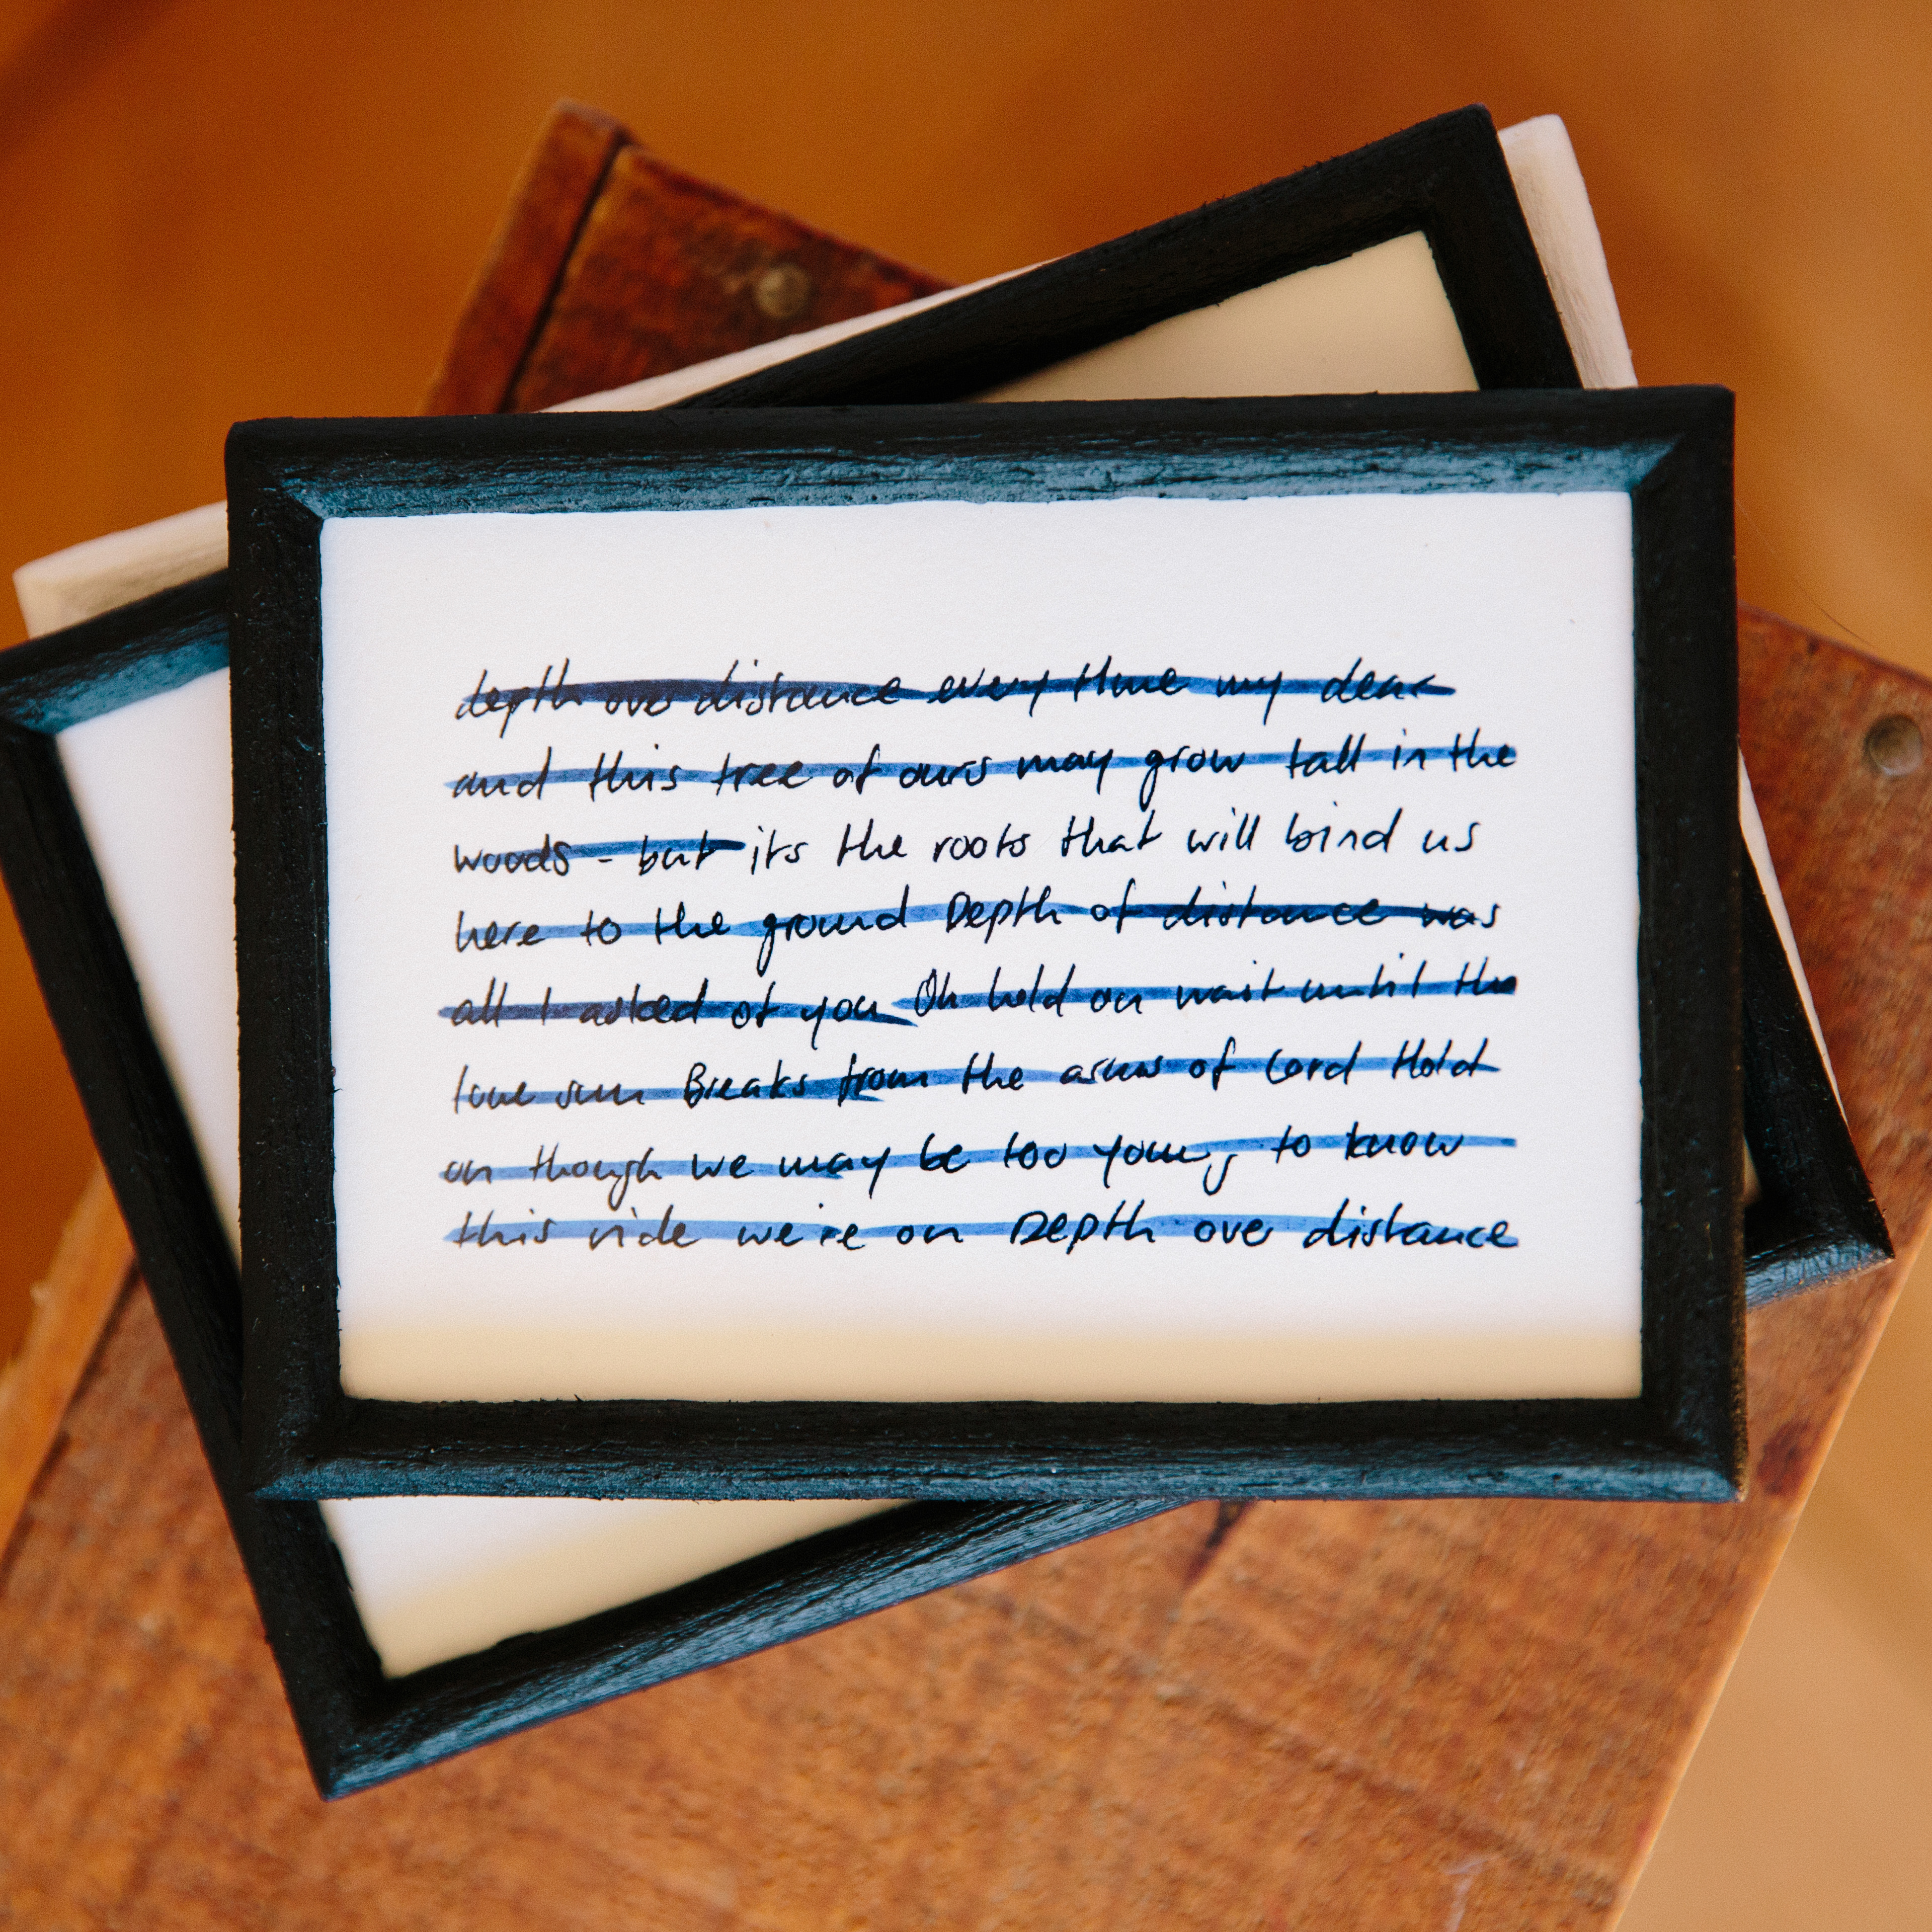 depth over distance every time my dear
and this tree of ours may grow tall in the
woods - but its the roots that will bind us
here to the ground Depth of distance was
all I asked of you Oh hold on wait until the
love sun Breaks from the arms of Lord Hold
on though we may be too young to know
this ride we're on Depth over distance